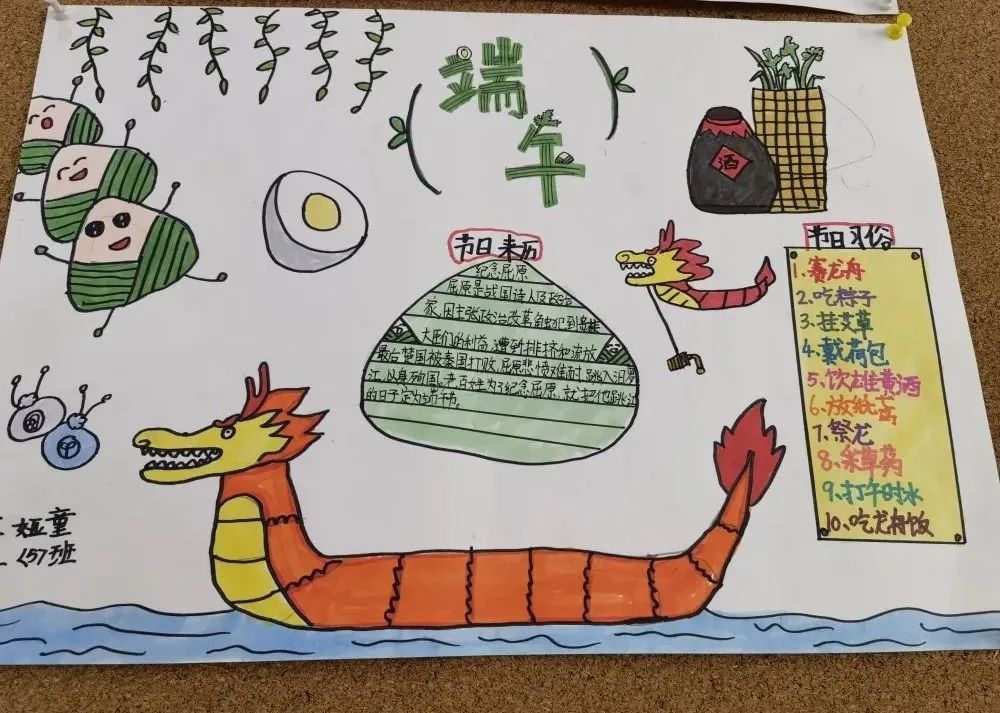 端
午
酒
节日来历
纪念屈原
屈原是战国诗人及政治
家，因主张政治改革触犯到贵族
大臣们的利益，遭到排挤和流放
最后楚国被秦国打败，屈原悲愤难耐跳入汨罗
江，以身殉国，老百姓为了纪念屈原，就把他跳江
的日子定为端午节。
节日习俗
1.赛龙舟
2.吃粽子
3.挂艾草
4.戴荷包
5.饮雄黄酒
6.放纸鸢
7.祭龙
8.采草药
9.打午时水
10.吃龙舟饭
娅童
<5>班